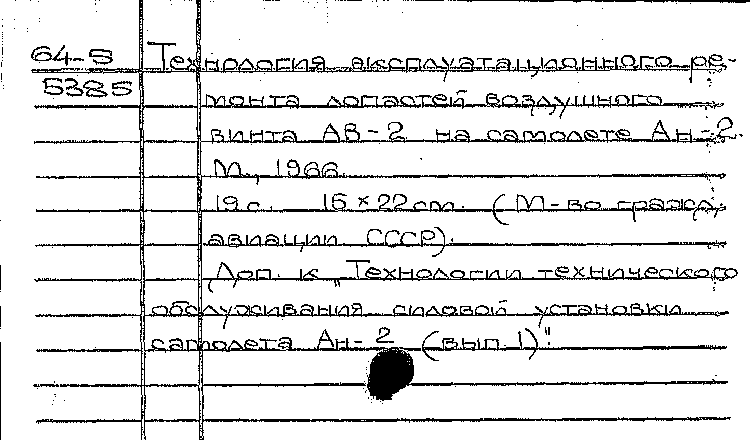 64-5 Технология эксплуатационного ре-
5385 монта лопастей воздушного
винта АВ-2 на самолете Ан-2.
М., 1966.
19 с. 15 × 22 см. (М-во гражд.
авиации СССР).
Доп. к „Технологии технического
обслуживания силовой установки
самолета Ан-2 (вып. 1)".